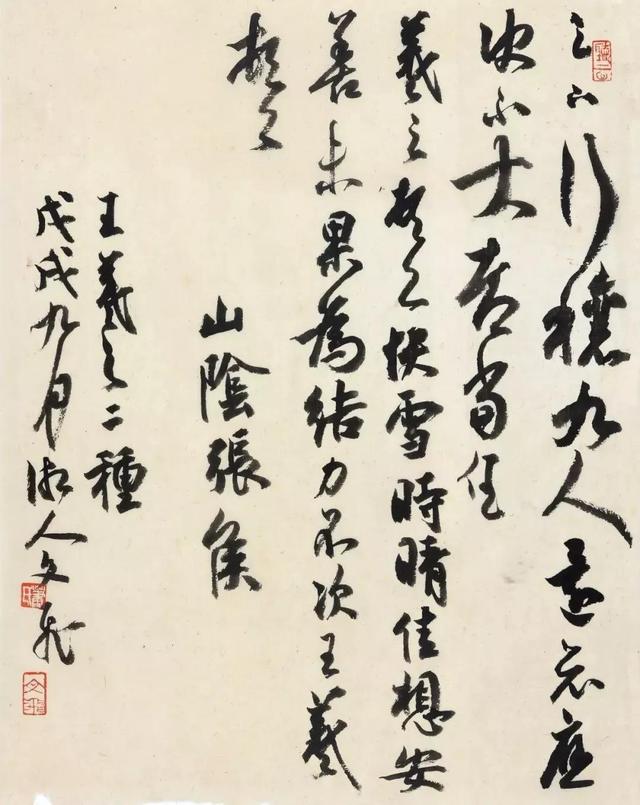 足下行穰九人還示應
決不大都當佳
羲之頓首快雪時晴佳想安
善未果為結力不次王羲
頓首
山陰張侯
王羲之二種
戊戌九月湘人文飛